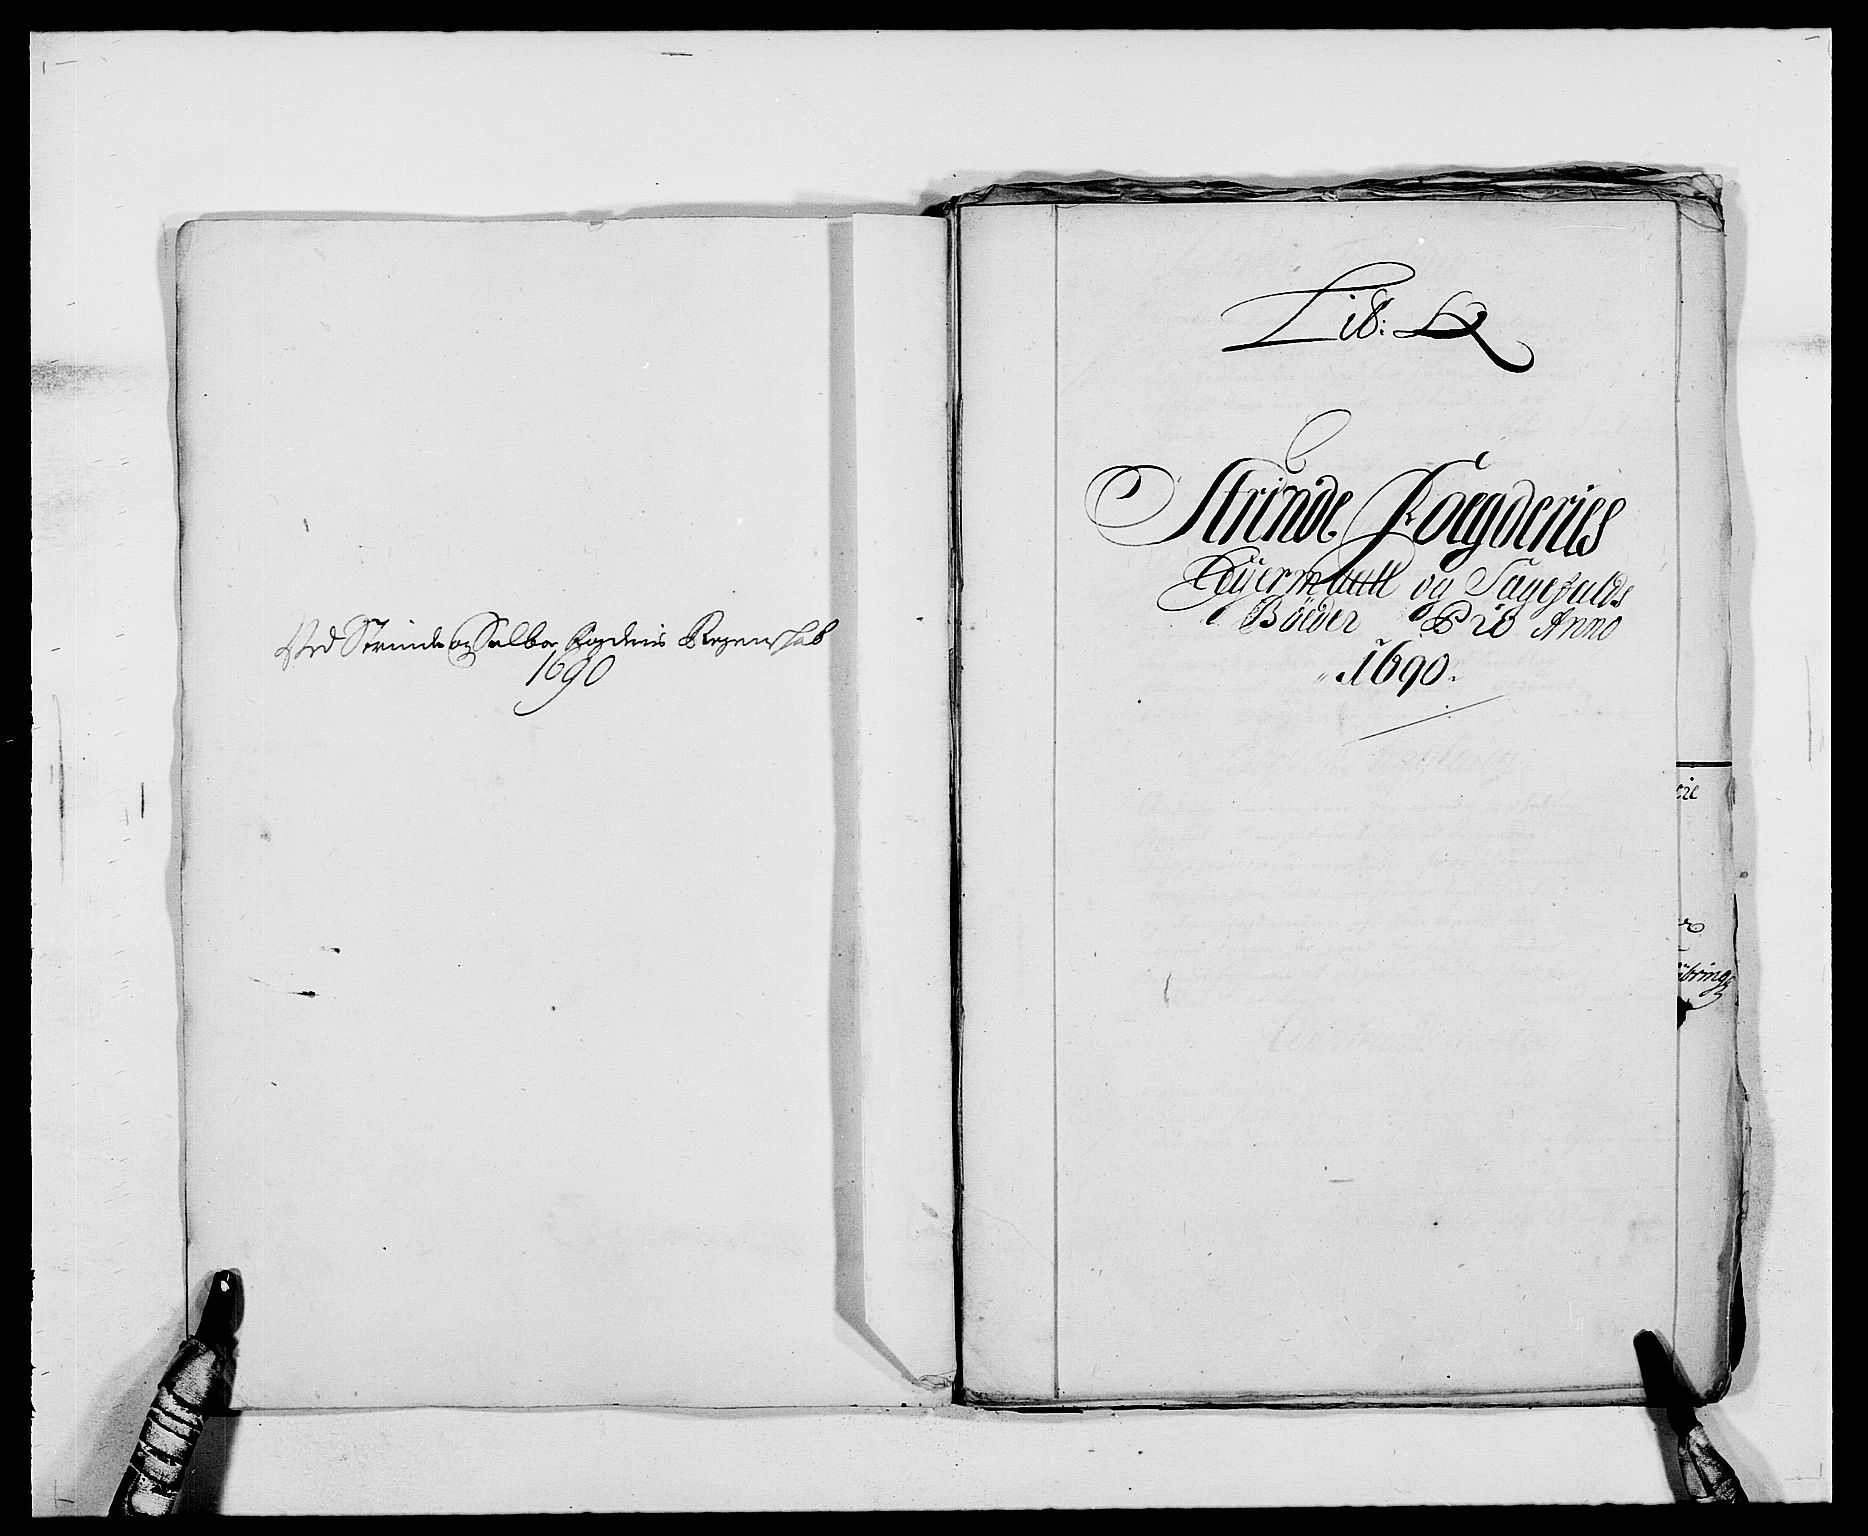 Ved Strinde og Selboe fogderis Regenskab
1690
Lib: Q
Strinde Foegderies
Leyermaall og Sagefalds
Bøeder Pro Anno
1690.